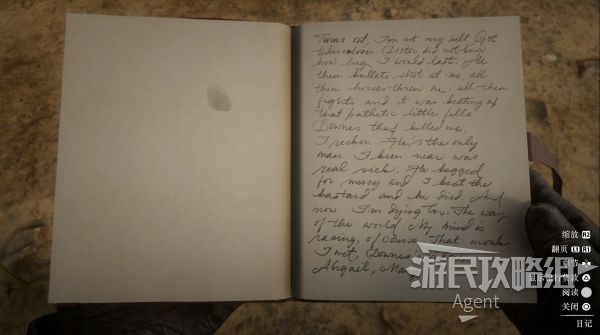 Turns out, I'm not very well. Got
tuberculosis. Doctor did not know
how long I would last. All
them bullets shot at me, all
them horses threw me, all them
fights and it was beating of
that pathetic little fella
Downes that killed me,
I reckon. He's the only
man I been near was
real sick. He begged
for mercy and I beat the
bastard and he died. And
now I'm dying too. The way
of the world. My mind is
racing, of course. That monk
I met, Downes
Abigail, Mar
缩放 R2
翻页 L1 R1
阅读
关闭
日记
游民攻略组
Agent